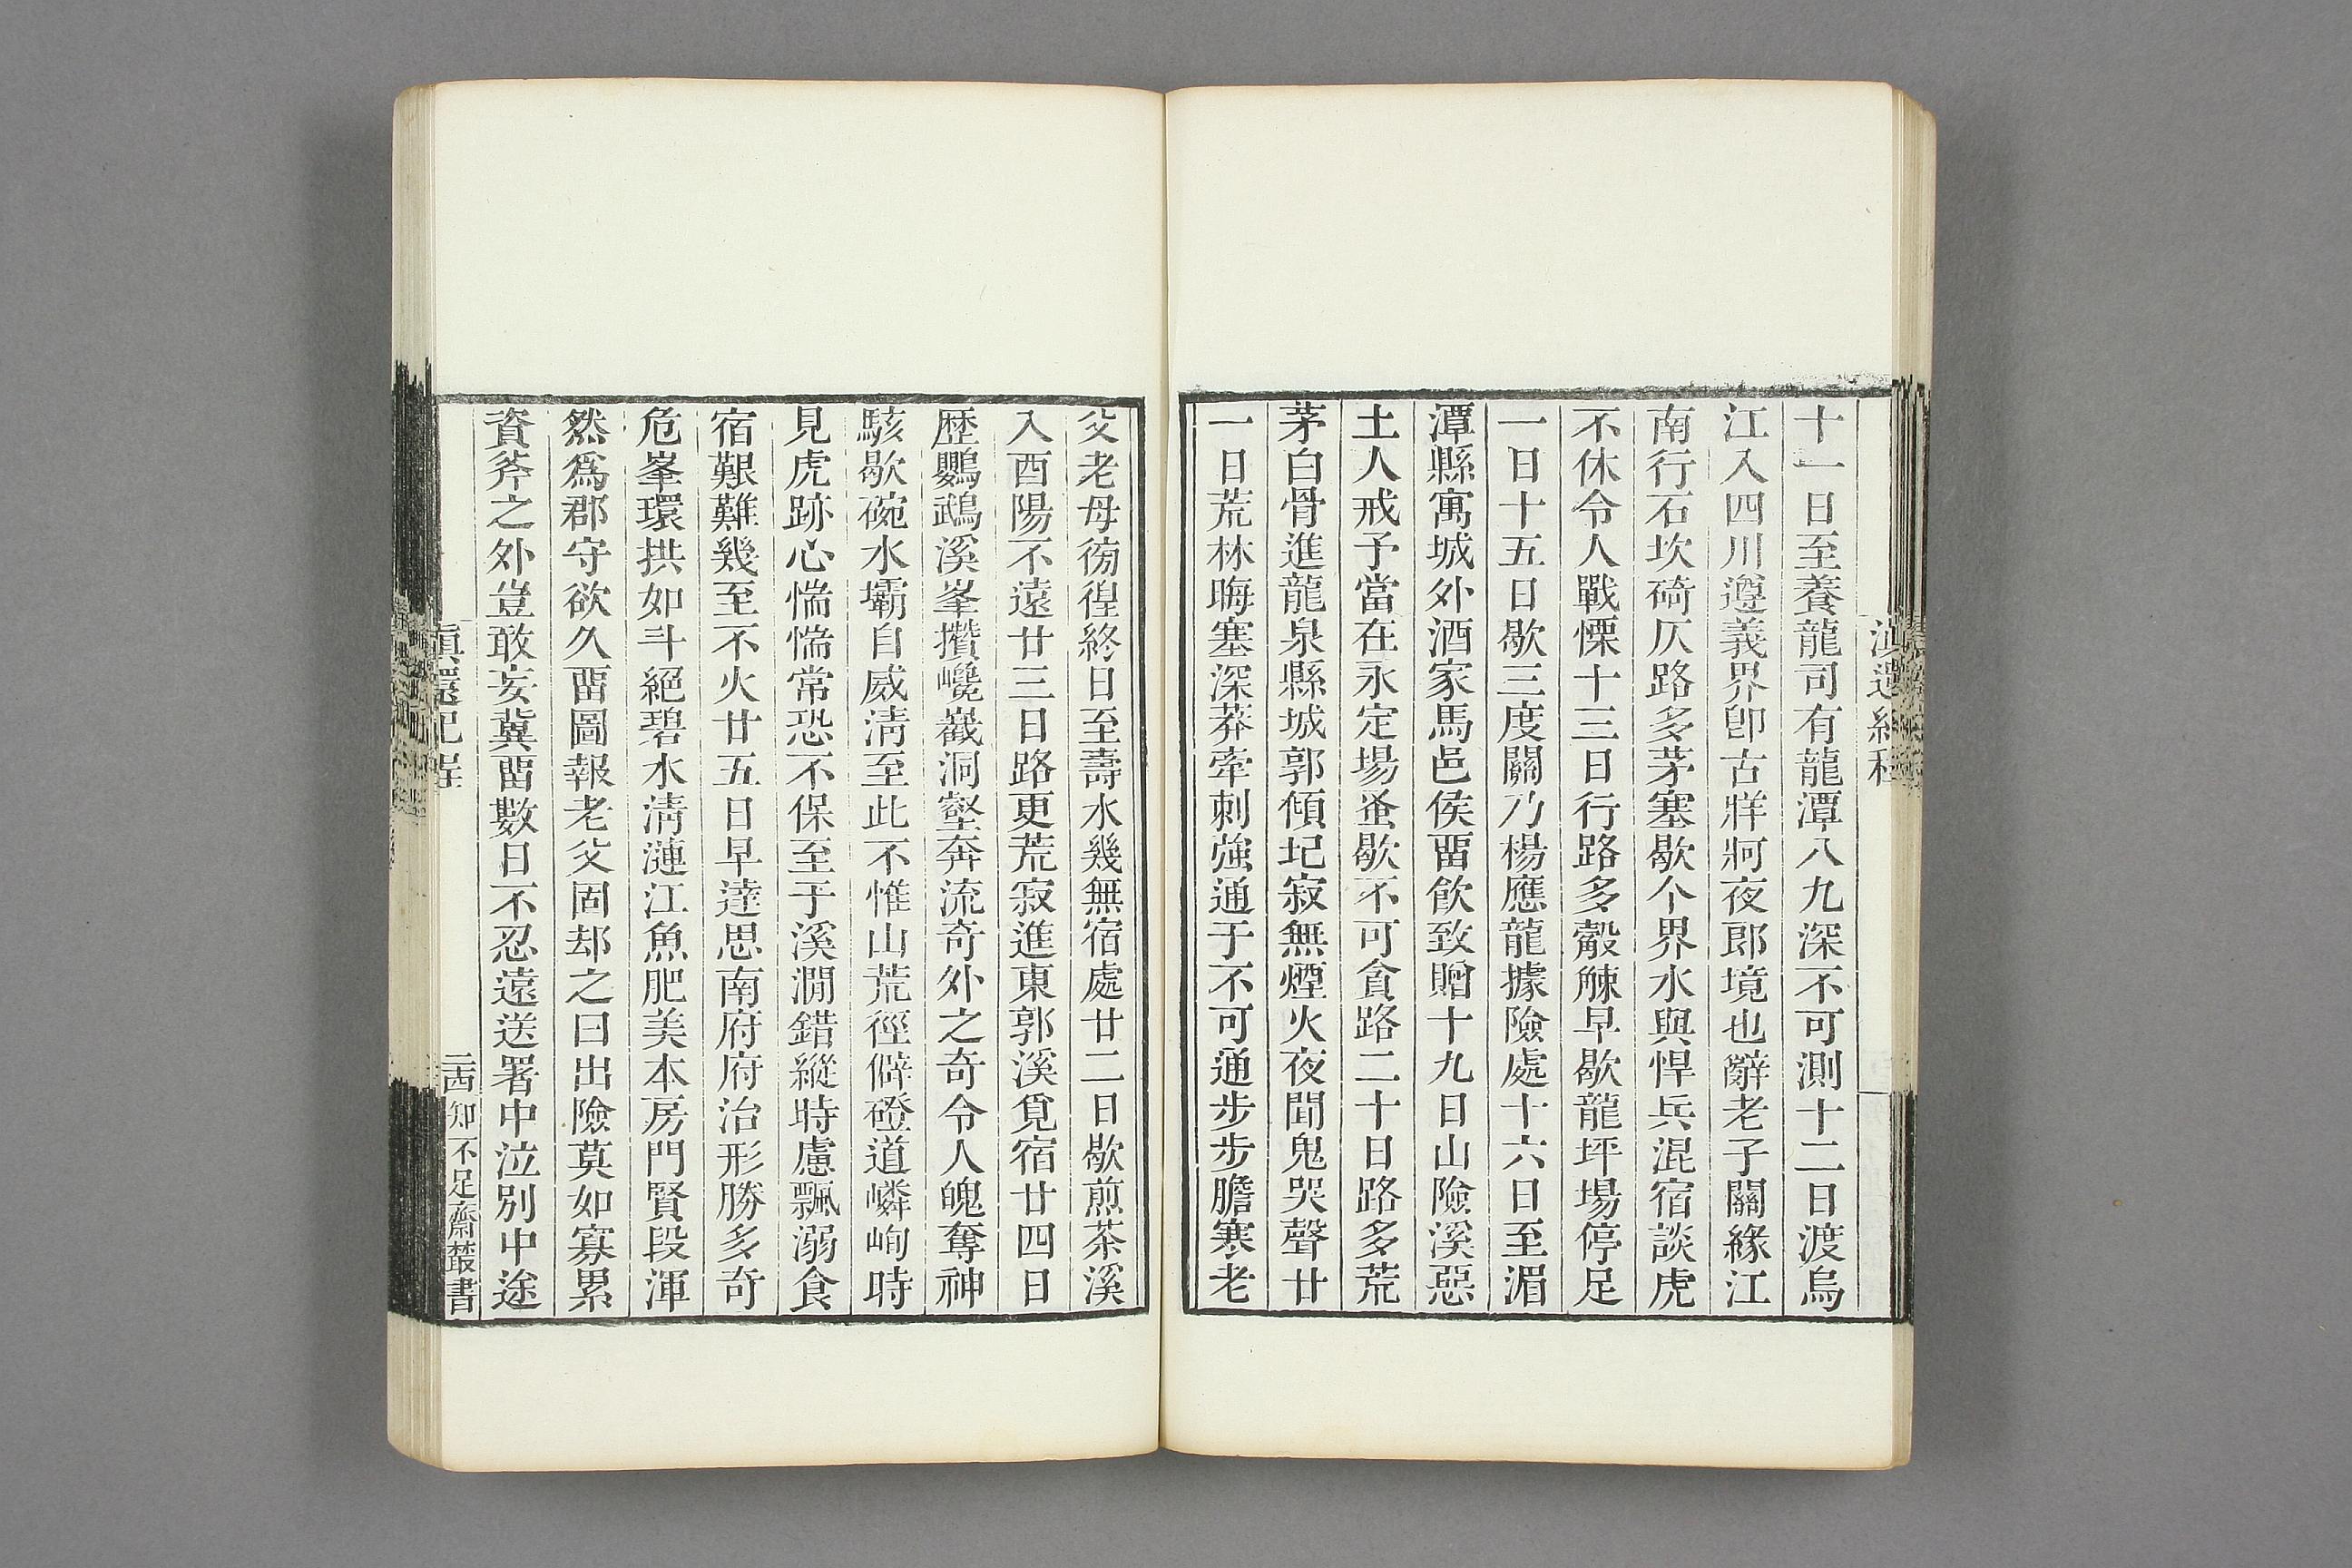 十一日至養龍司有龍潭八九深不可測十二日渡烏
江入四川遵義界卽古牂牁夜郎境也辭老子關緣江
南行石坎碕仄路多茅塞歇个界水與悍兵混宿談虎
不休令人戰慄十三日行路多觳觫早歇龍坪場停足
一日十五日歇三度關乃楊應龍據險處十六日至湄
潭縣寓城外酒家馬邑侯畱飮致贈十九日山險溪惡
土人戒予當在永定場蚤歇不可貪路二十日路多荒
茅白骨進龍泉縣城郭傾圮寂無煙火夜聞鬼哭聲廿
一日荒林晦塞深莽牽刺強通于不可通步步膽寒老
父老母徬徨終日至壽水幾無宿處廿二日歇煎茶溪
入酉陽不遠廿三日路更荒寂進東郭溪覓宿廿四日
歷鸚鵡溪峯攢巉巀洞壑奔流奇外之奇令人魄奪神
駭歇碗水壩自威淸至此不惟山荒徑僻磴道嶙峋時
見虎跡心惴惴常恐不保至于溪澗錯縱時慮飄溺食
宿艱難幾至不火廿五日早達思南府府治形勝多奇
危峯環拱如斗絕碧水淸漣江魚肥美本房門賢段渾
然爲郡守欲久畱圖報老父固却之曰出險莫如寡累
資斧之外豈敢妄冀畱數日不忍遠送署中泣別中途
滇還紀程
二西 知不足齋叢書